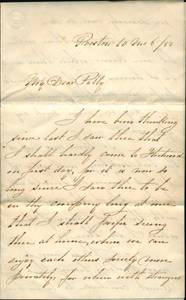 My Dear Polly
I have been thinking
since last I saw thee that
I shall hardly come to
on first day, for it is now so
long since I saw thee to be
in thy company long at once
that I shall prefer seeing
thee at home, where we can
enjoy each others society more
privately for when with strangers